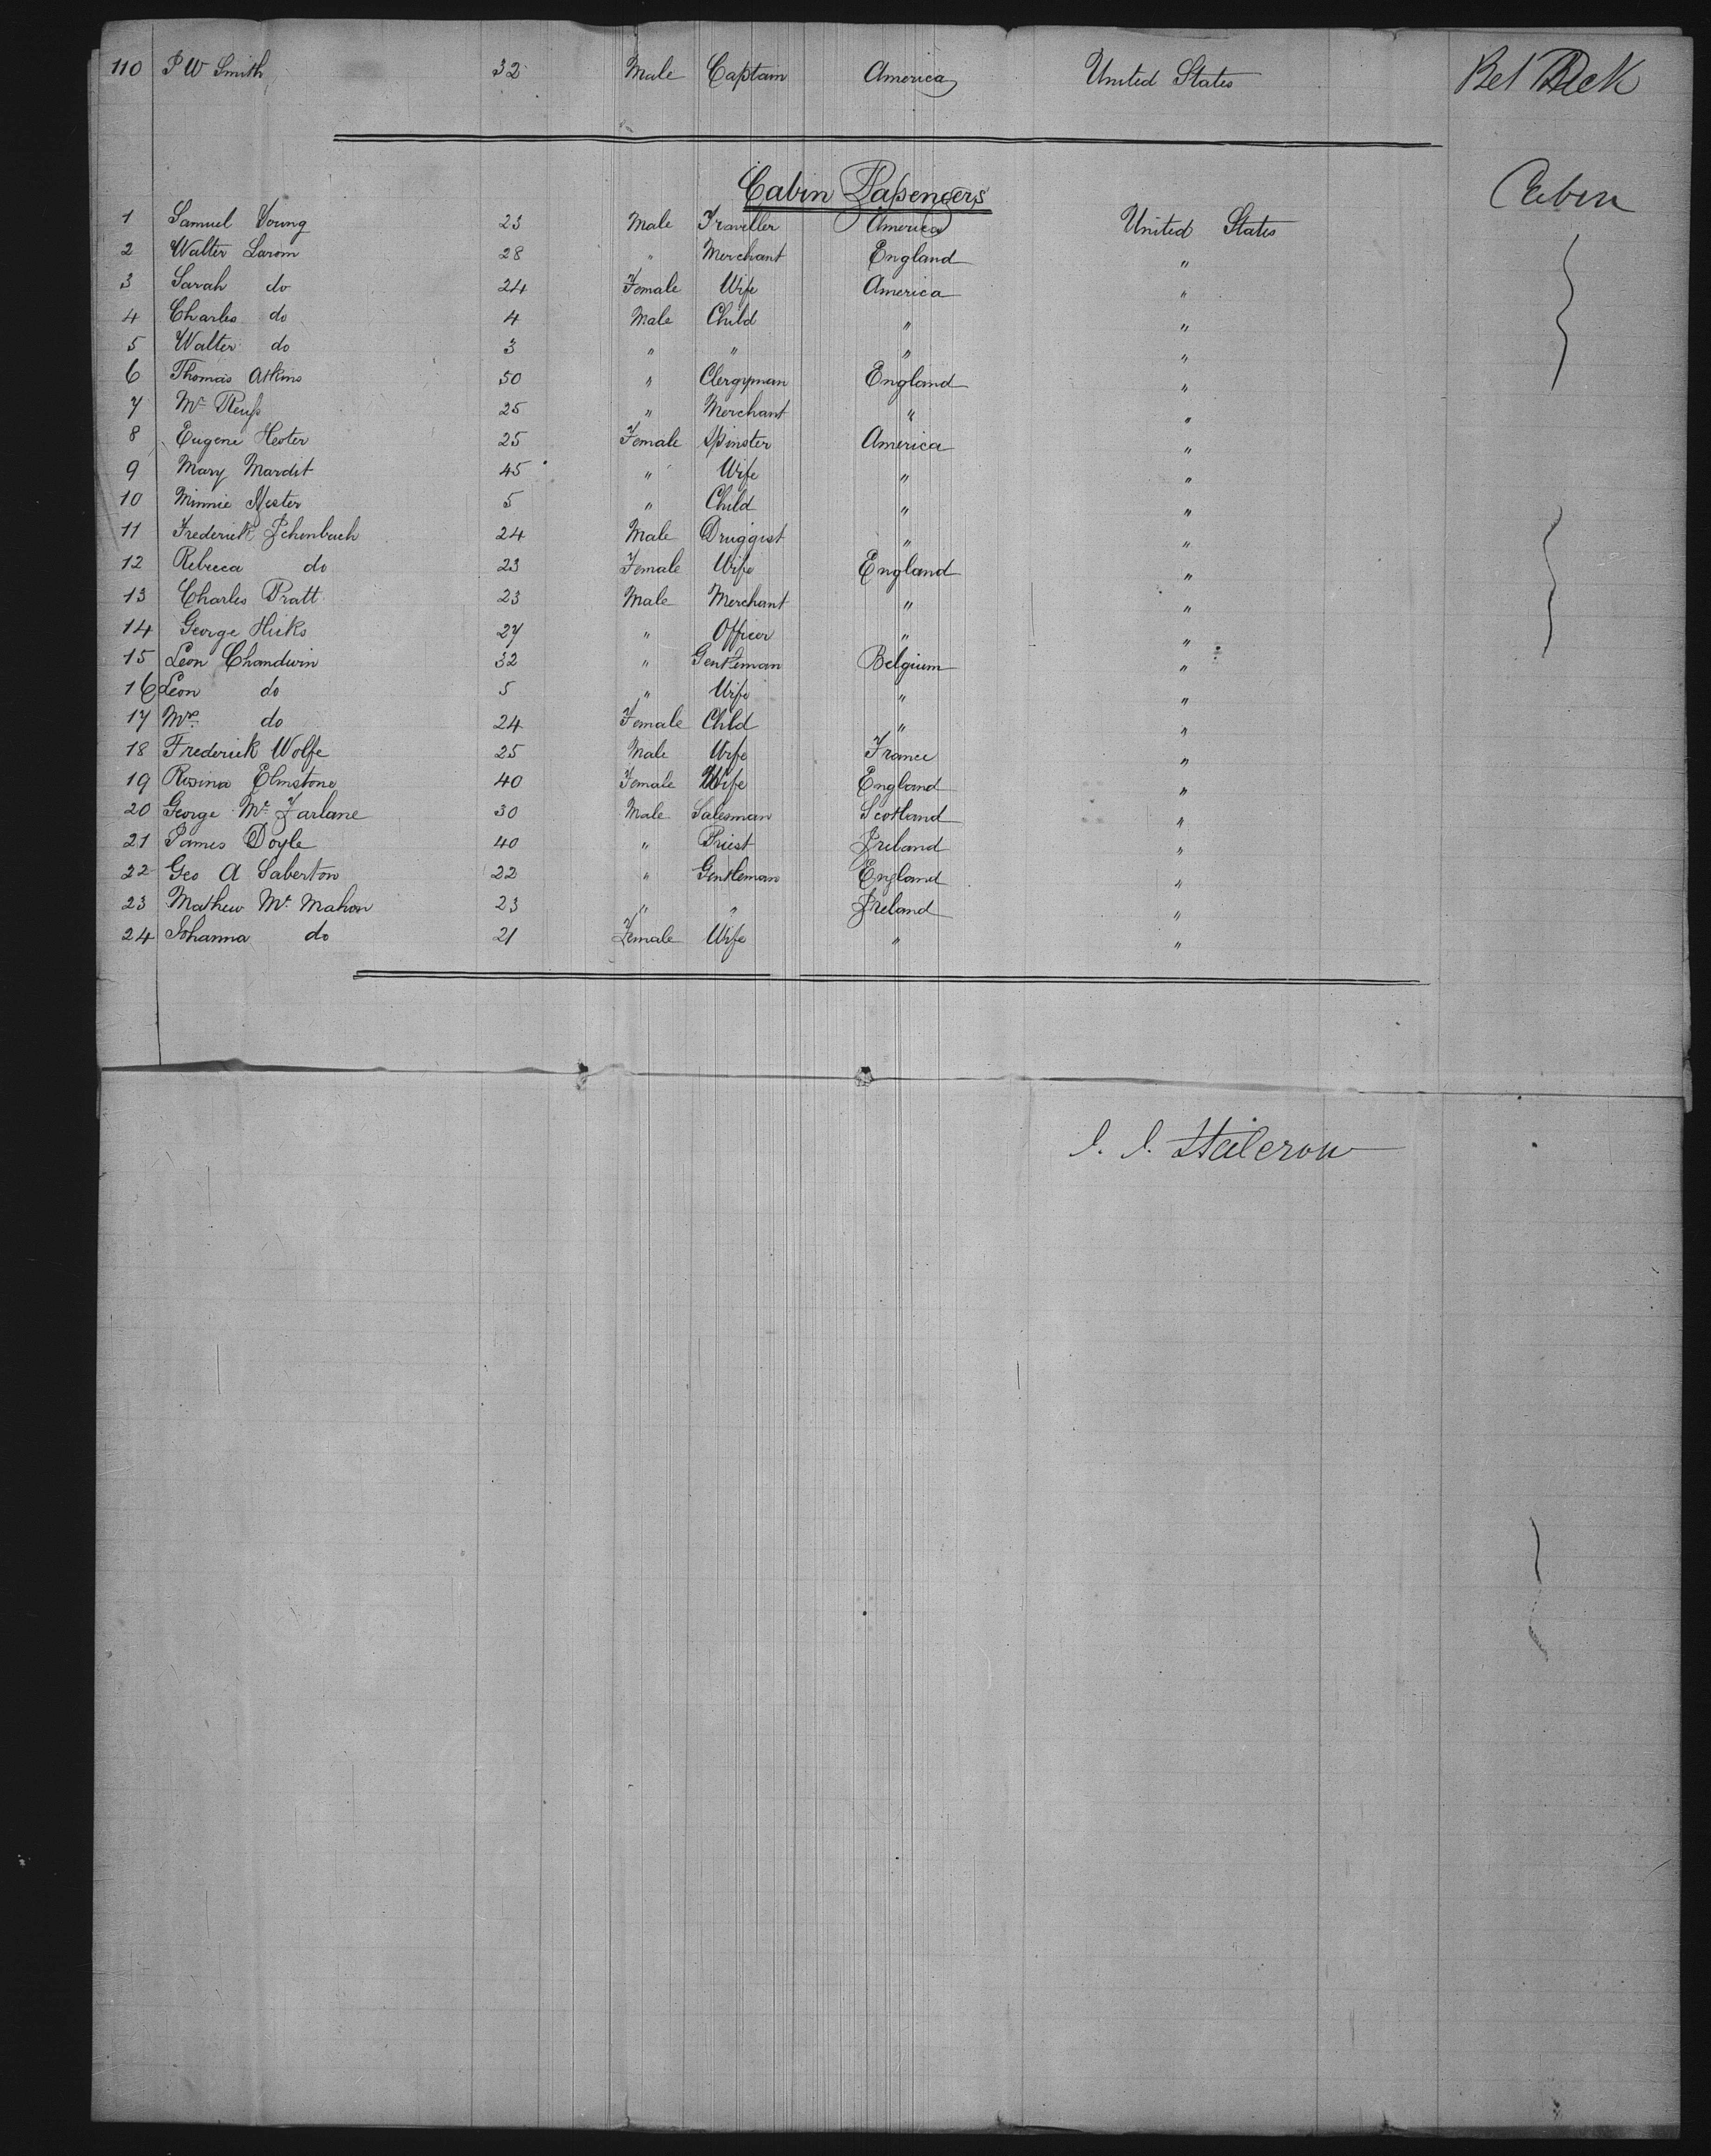 110 P W Smith 32 Male Captain America United States Bet Deck
Cabin Passengers
Cabin
1 Samuel Young 23 Male Traveller America United States
2 Walter Larom 28 " Merchant England "
3 Sarah do 24 Female Wife America "
4 Charles do 4 Male Child " "
5 Walter do 3 " " " "
6 Thomas Atkins 50 " Clergyman England "
7 Mr Reuss 25 " Merchant " "
8 Eugene Hester 25 Female Spinster America "
9 Mary Mardit 45 " Wife " "
10 Minnie Hester 5 " Child " "
11 Frederick 24 Male Druggist " "
12 Rebecca do 23 Female Wife England "
13 Charles Pratt 23 Male Merchant " "
14 George Hicks 27 " Officer " "
15 Leon Chandwin 32 " Gentleman Belgium "
16 Leon do 5 " Wife " "
17 Mrs do 24 Female Chld " "
18 Frederick Wolfe 25 Male Wife France "
19 Rosina Elmstone 40 Female Wife England "
20 George Mc Farlane 30 Male Salesman Scotland "
21 James Doyle 40 " Priest Ireland "
22 Geo A Saberton 22 " Gentleman England "
23 Mathew Mc Mahon 23 " " Ireland "
24 Johanna do 21 Female Wife " "